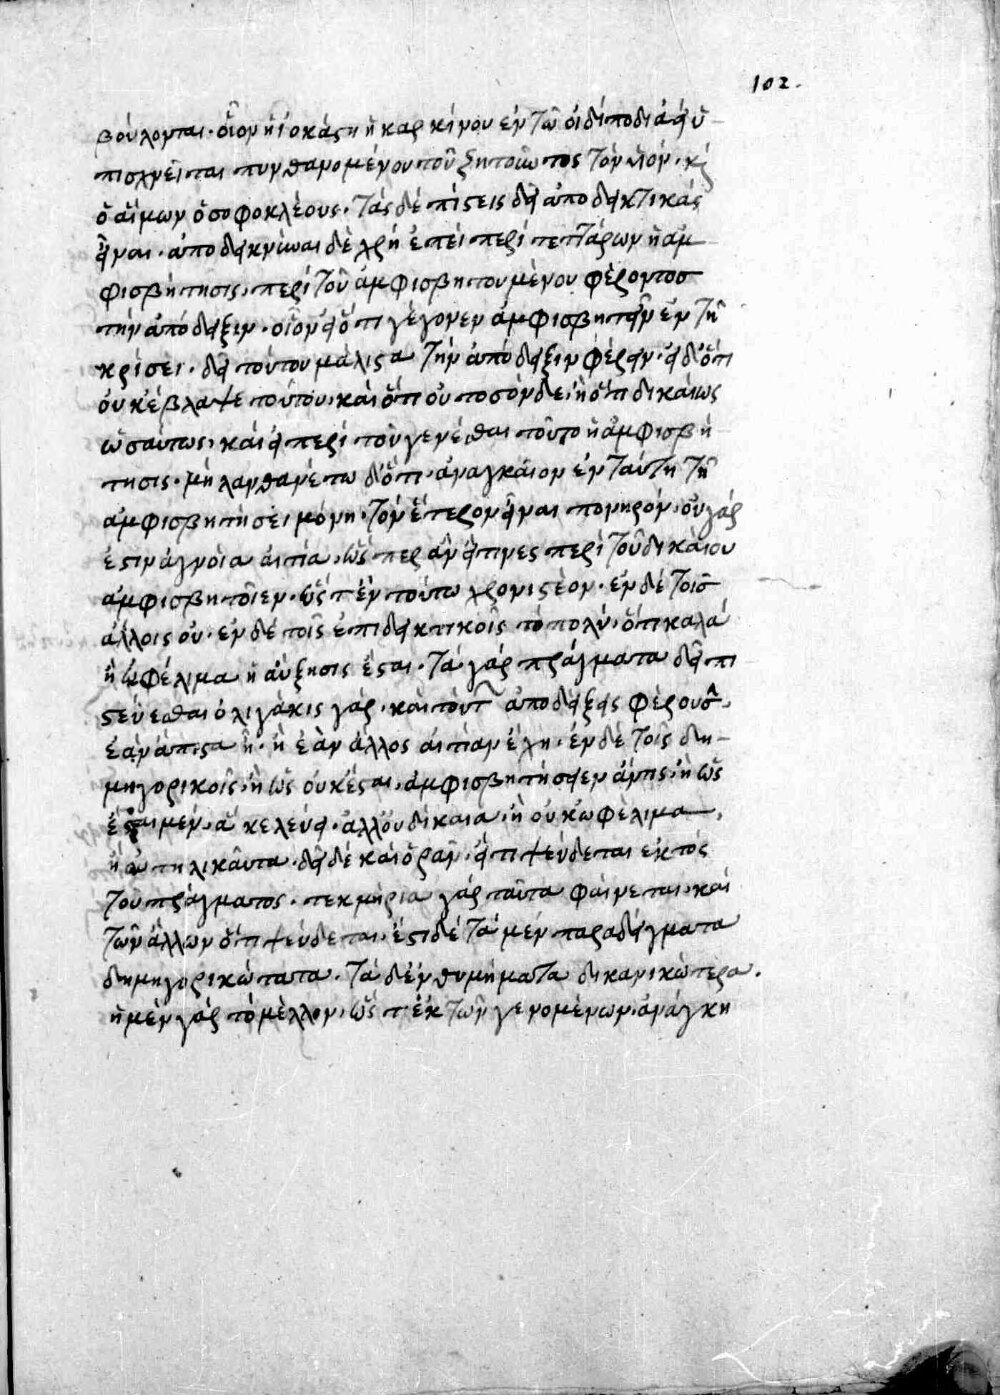 102.
βούλονται· οἷον ἡ ἰοκάστη ἡ καρκίνου ἐν τῶ οἰδίποδι ἀεὶ ὑ
πισχνεῖται πυνθανομένου τοῦ ζητοῦντος τὸν υἱόν· καὶ
ὁ αἵμων ὁ σοφοκλέους. τὰς δὲ πίστεις δεῖ ἀποδεικτικὰς
εἶναι· ἀποδεικνύναι δὲ χρὴ ἐπεὶ περὶ τεττάρων ἡ ἀμ
φισβήτησις, περὶ τοῦ ἀμφισβητουμένου φέροντος
τὴν ἀπόδειξιν· οἷον εἰ ὅτι γέγονεν ἀμφισβητεῖν ἐν τῆ
κρίσει· δεῖ τούτου μάλιστα τὴν ἀπόδειξιν φέρειν· εἰ δ' ὅτι
οὐκ ἔβλαψε τούτου· καὶ ὅτι οὐ τοσόνδε, ἢ ὅτι δικαίως
ὡσαύτως· καὶ εἰ περὶ τοῦ γενέσθαι τοῦτο ἡ ἀμφισβή
τησις· μὴ λανθανέτω δ' ὅτι· ἀναγκαῖον ἐν ταύτη τῆ
ἀμφισβητήσει μόνη· τὸν ἕτερον εἶναι πονηρόν· οὐ γάρ
ἐστιν ἄγνοια αἰτία, ὥσπερ ἂν εἴ τινες περὶ τοῦ δικαίου
ἀμφισβητοῖεν· ὥστ' ἐν τούτω χρονιστέον· ἐν δὲ τοῖς
ἄλλοις οὔ· ἐν δὲ τοῖς ἐπιδεικτικοῖς τὸ πολὺ· ὅτι καλὰ
ἢ ὠφέλιμα ἡ αὔξησις ἔσται· τὰ γὰρ πράγματα δεῖ πι
στεύεσθαι ὀλιγάκις γὰρ· καὶ τούτ ἀποδείξεις φέρουσ.
ἐὰν ἄπιστα ἦ· ἢ ἐὰν ἄλλος αἰτίαν ἔχη· ἐν δὲ τοῖς δη
μηγορικοῖς, ἢ ὡς οὐκ ἔσται, ἀμφισβητήσειεν ἄν τις, ἢ ὡς
ἔσται μέν, ἃ κελεύει· ἀλλ' οὐ δίκαια· ἢ οὐκ ὠφέλιμα,
ἢ οὐ τηλικαῦτα· δεῖ δὲ καὶ ὁρᾶν· εἴ τι ψεύδεται ἐκτὸς
τοῦ πράγματος. τεκμήρια γὰρ ταῦτα φαίνεται· καὶ
τῶν ἄλλων ὅτι ψεύδεται. ἔστι δὲ τὰ μὲν παραδείγματα
δημηγορικώτατα. τὰ δ' ἐνθυμήματα δικανικώτερα.
ἡ μὲν γὰρ τὸ μέλλον, ὥστ' ἐκ τῶν γενομένων ἀνάγκη